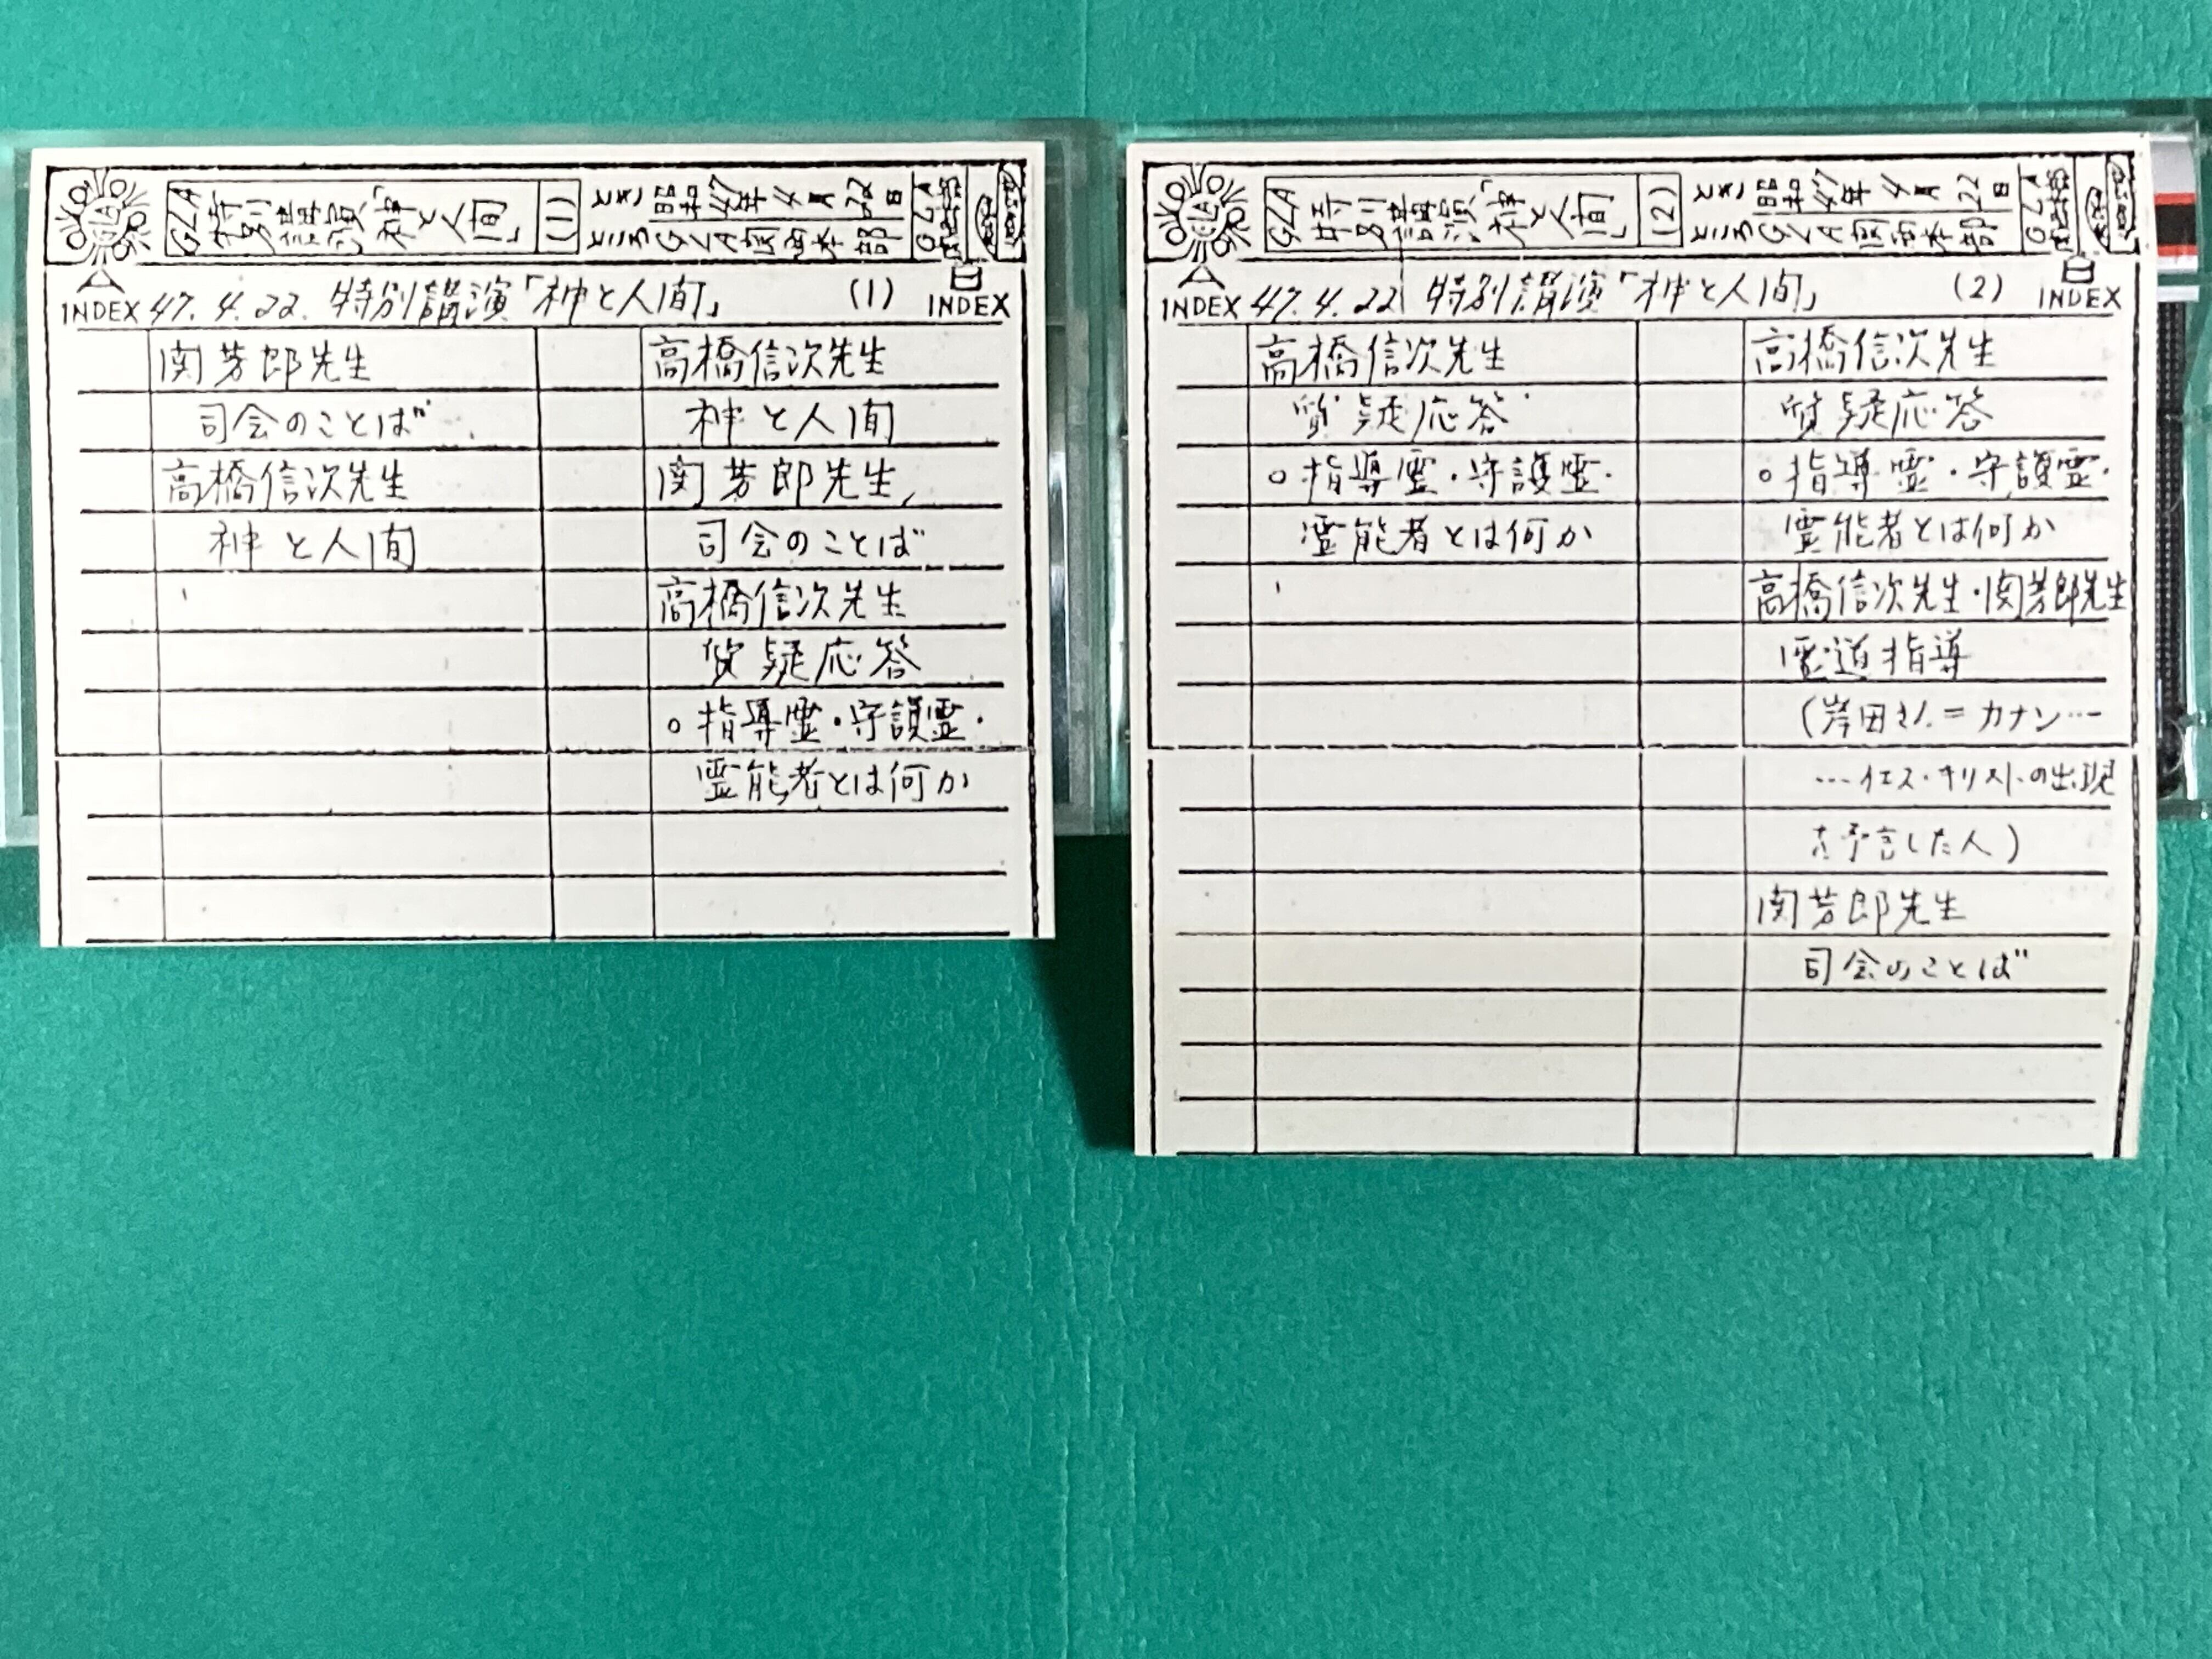 GLA 特別講演「神と人間」 (1) とき 昭和47年4月22日
ところ GLA関西本部
GLA
A INDEX 47.4.22. 特別講演「神と人間」 (1) B INDEX
関芳郎先生
司会のことば
高橋信次先生
神と人間
高橋信次先生
神と人間
関芳郎先生
司会のことば
高橋信次先生
質疑応答
○指導霊・守護霊・
霊能者とは何か
GLA 特別講演「神と人間」 (2) とき 昭和47年4月22日
ところ GLA関西本部
GLA
A INDEX 47.4.22 特別講演「神と人間」 (2) B INDEX
高橋信次先生
質疑応答
○指導霊・守護霊・
霊能者とは何か
高橋信次先生
質疑応答
○指導霊・守護霊・
霊能者とは何か
高橋信次先生・関芳郎先生
霊道指導
(岸田さん=カナン…
…イエス・キリストの出現
を予言した人)
関芳郎先生
司会のことば